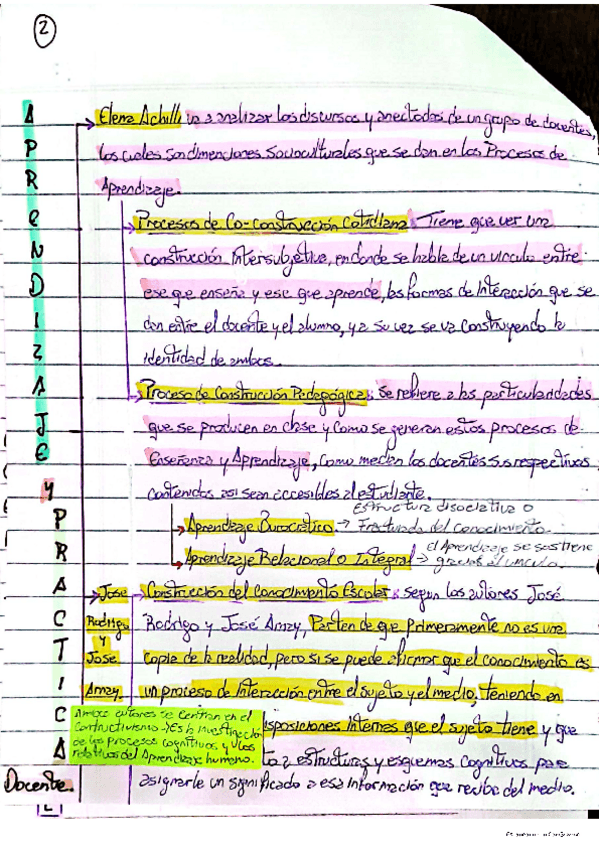 2
APRENDIZAJE
y
PRACTICA
Docente
Elena Achilli va a analizar los discursos y anectodas de un grupo de docentes,
los cuales son dimenciones socioculturales que se dan en los Procesos de
Aprendizaje.
Procesos de Co-construcción Cotidiana Tiene que ver una
construcción Intersubjetiva, en donde se habla de un vinculo entre
ese que enseña y ese que aprende, las formas de Interacción que se
dan entre el docente y el alumno, y a su vez se va construyendo la
identidad de ambos.
Proceso de Construcción Pedagógica: Se refiere a las particularidades
que se producen en clase y como se generan estos procesos de
Enseñanza y Aprendizaje, como median los docentes sus respectivos
contenidos asi sean accesibles al estudiante.
Aprendizaje Burocratico → Estructura disociativa o
Fracturada del conocimiento.
Aprendizaje Relacional o Integral → el Aprendizaje se sostiene
gracias al vinculo.
Jose
Rodrigo
y
Jose
Arnay
Construcción del Conocimiento Escolar: según los autores José
Rodrigo y José Arnay, Parten de que primeramente no es una
copia de la realidad, pero si se puede afirmar que el conocimiento es
un proceso de Interacción entre el sujeto y el medio, teniendo en
isposiciones internas que el sujeto tiene y que
ta a estructuras y esquemas Cognitivos para
asignarle un significado a esa información que recibe del medio.
Ambos autores se centran en el
Contructivismo → Es la investigación
de los procesos cognitivos y los
relativos del Aprendizaje humano.